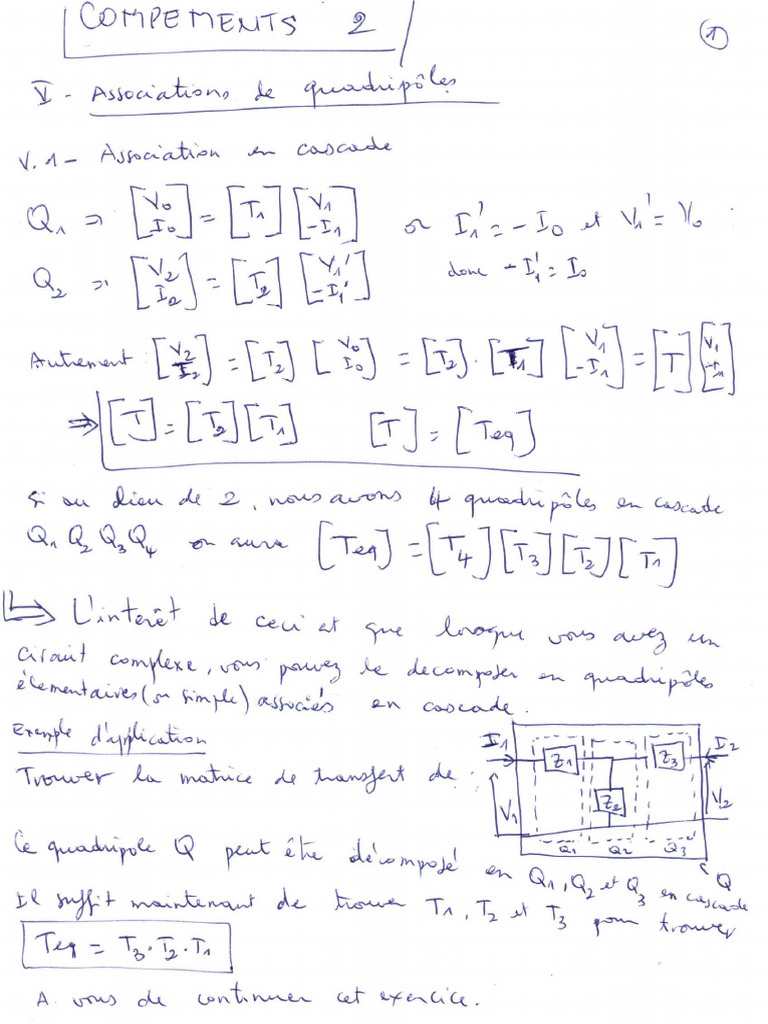 COMPEMENTS 2
①
V - Associations de quadripôles
V.1 - Association en cascade
Q1 => [V0 I0] = [T1] [V1 -I1] or I1' = -I0 et V1' = V0 :
Q2 => [V2 I2] = [T2] [V1' -I1'] donc -I1' = I0
Autrement [V2 I2] = [T2] [V0 I0] = [T2] . [T1] [V1 -I1] = [T] [V1 -I1]
=> [T] = [T2] [T1] [T] = [Teq]
Si au lieu de 2, nous avons 4 quadripôles en cascade
Q1 Q2 Q3 Q4 on aura [Teq] = [T4] [T3] [T2] [T1]
L'intérêt de ceci est que lorsque vous avez un
circuit complexe, vous pouvez le decomposer en quadripôles
élementaires (ou simple) associés en cascade.
Exemple d'application
Trouver la matrice de transfert de :
I1 Z1 Z3 I2
V1 Z2 V2
Q1 Q2 Q3 Q
Ce quadripole Q peut être décomposé en Q1, Q2 et Q3 en cascade
Il suffit maintenant de trouver T1, T2 et T3 pour trouver
Teq = T3 . T2 . T1
A vous de continuer cet exercice.